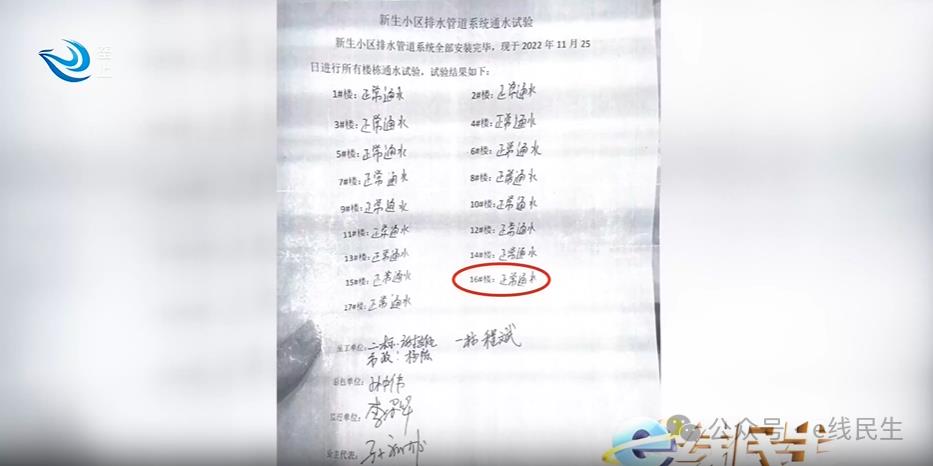 新生小区排水管道系统通水试验
新生小区排水管道系统全部安装完毕，现于 2022 年 11 月 25
日进行所有楼栋通水试验，试验结果如下：
1#楼：正常通水 2#楼：正常通水
3#楼：正常通水 4#楼：正常通水
5#楼：正常通水 6#楼：正常通水
7#楼：正常通水 8#楼：正常通水
9#楼：正常通水 10#楼：正常通水
11#楼：正常通水 12#楼：正常通水
13#楼：正常通水 14#楼：正常通水
15#楼：正常通水 16#楼：正常通水
17#楼：正常通水
施工单位：二标 一标 程斌
市政：杨
总包单位：
监理单位：
业主代表：
公众号 · e线民生